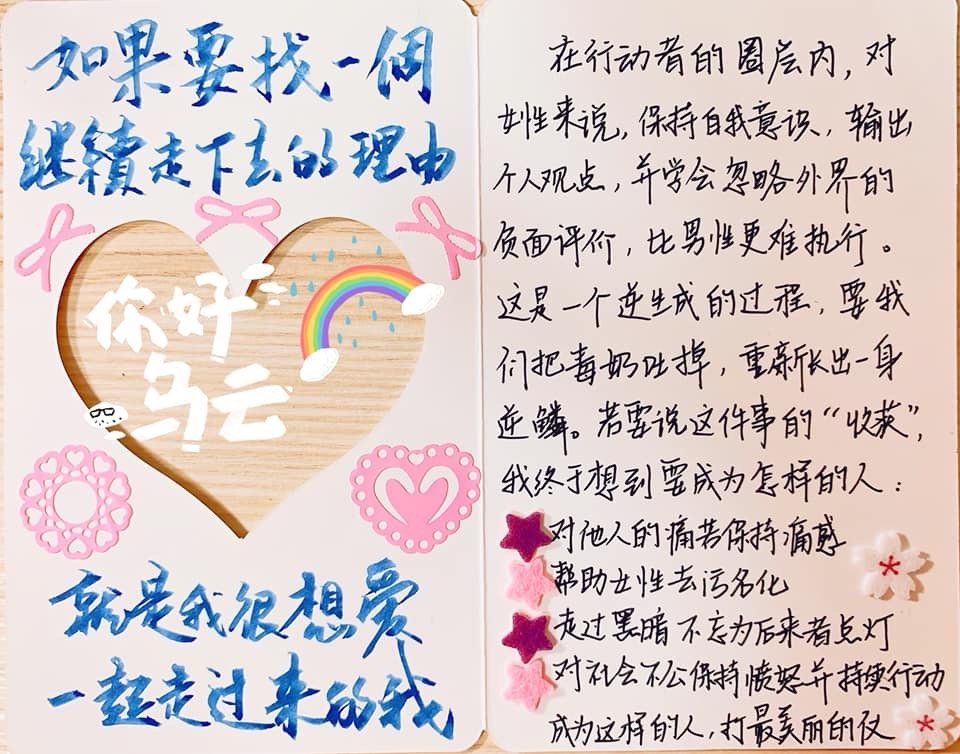 如果要找一個
继續走下去的理由
你好
乌云
就是我很想爱
一起走过来的我
在行动者的圈层内，对
女性来说，保持自我意识，输出
个人观点，并学会忽略外界的
负面评价，比男性更难执行。
这是一个逆生成的过程，要我
们把毒奶吐掉，重新长出一身
逆鳞。若要说这件事的“收获”，
我终于想到要成为怎样的人：
对他人的痛苦保持痛感
帮助女性去污名化
走过黑暗不忘为后来者点灯
对社会不公保持愤怒并持续行动
成为这样的人，打最美丽的仗